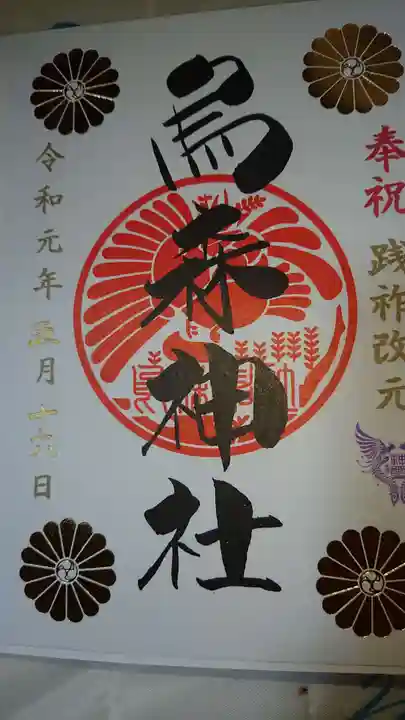 奉祝 践祚改元
烏森神社
令和元年五月十六日